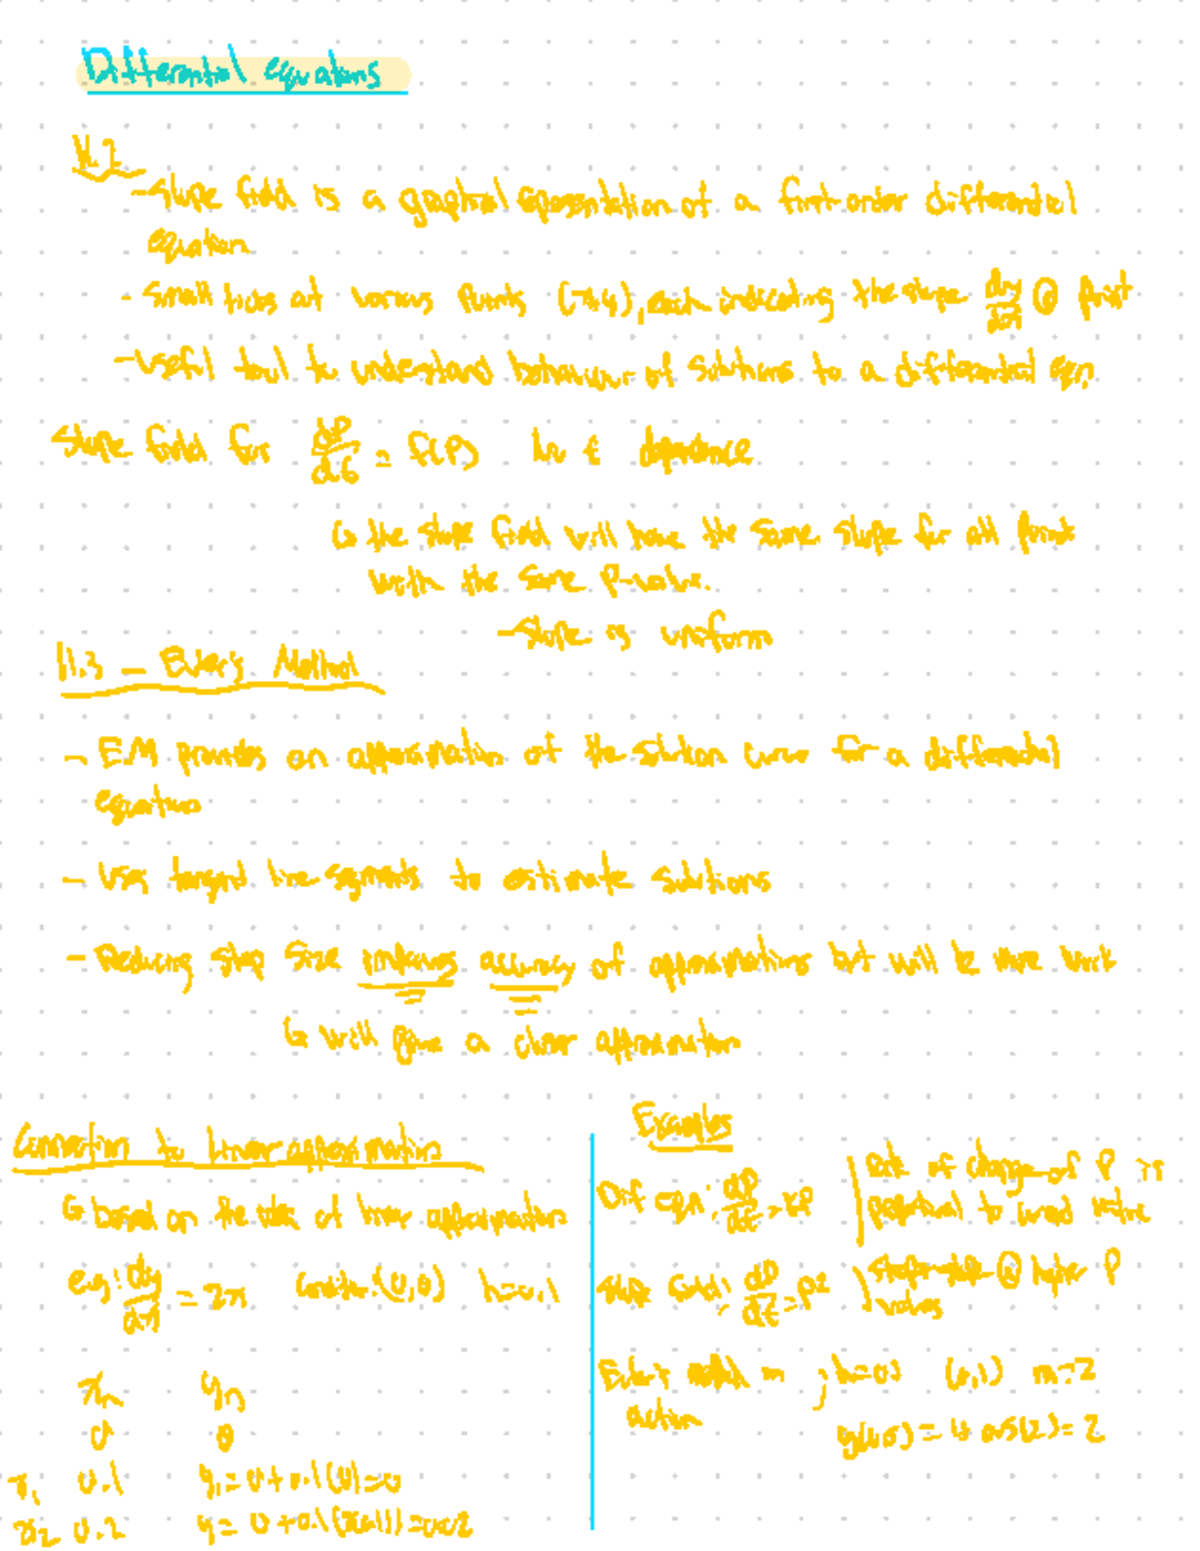 Differential equations
11.2
- Slope field is a graphical representation of a first-order differential
equation
- Small ticks at various points (x,y), each indicating the slope dy/dx @ point
- Useful tool to understand behaviour of solutions to a differential eqn
Slope field for dP/dt = f(P) no t dependence
↳ the slope field will have the same slope for all points
with the same P-value.
- Slope is uniform
11.3 - Euler's Method
- EM provides an approximation of the solution curve for a differential
equation
- Uses tangent line segments to estimate solutions
- Reducing step size accuracy of approximations but will be more work
↳ will give a closer approximation
Connection to linear approximation
↳ based on the idea of linear approximation
eg: dy/dx = 2x (0,0) h=0.1
xn yn
0 0
x1 0.1 y1 = 0+0.1(0)=0
x2 0.2 y = 0+0.1(2(0.1))=0.02
Examples
Dif eqn: dP/dt = kP
Rate of change of P is
proportional to
Slope field: dP/dt = P²
@ higher P
values
Euler's method in ; (0,1) m=2
action
= 1+0.5(2)=2